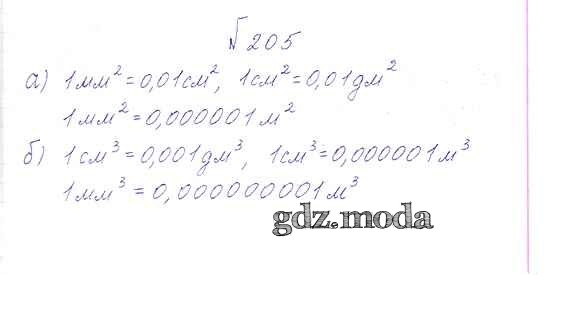 № 205
а) 1мм² = 0,01см², 1см² = 0,01дм²
1мм² = 0,000001м²
б) 1см³ = 0,001дм³, 1см³ = 0,000001м³
1мм³ = 0,000000001м³
gdz.moda